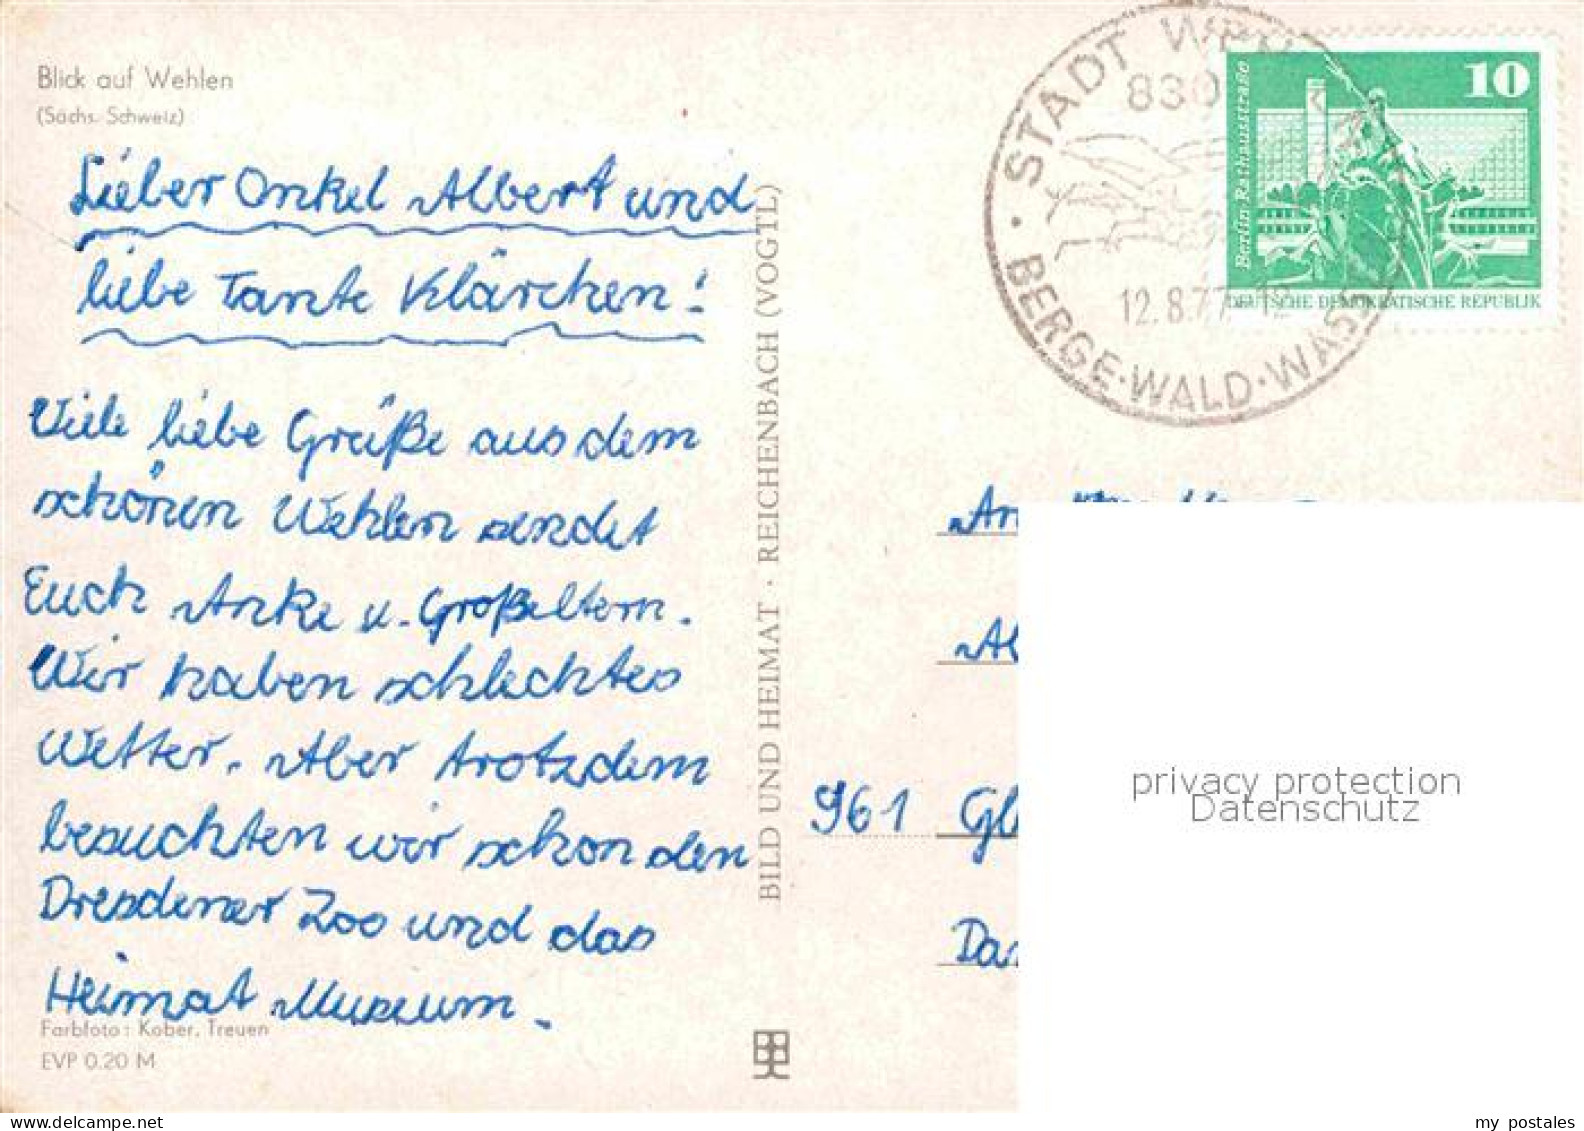 Blick auf Wehlen
(Sächs. Schweiz)
Lieber Onkel Albert und
liebe Tante Klärchen!
Viele liebe Grüße aus dem
schönen Wehlen sendet
Euch Anke u. Großeltern.
Wir haben schlechtes
Wetter. Aber trotzdem
besuchten wir schon den
Dresdener Zoo und das
Heimat Museum.
Farbfoto: Kober, Treuen
EVP 0.20 M
BILD UND HEIMAT · REICHENBACH (VOGTL)
· STADT
830
12.8.77-12
BERGE·WALD·WASS
10
Berlin Rathausstraße
DEUTSCHE DEMOKRATISCHE REPUBLIK
An
Al
961 Gl
Da
privacy protection
Datenschutz
www.delcampe.net
my_postales